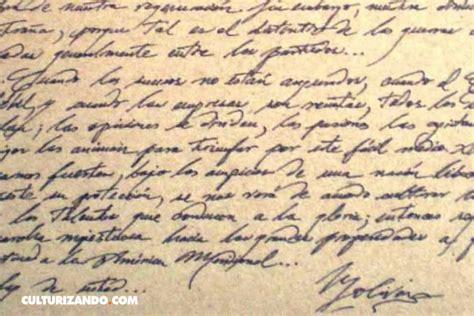 de nuestra regeneración. Sin embargo, nuestra
porque tal es el distintivo de las guerras
generalmente entre los partidos...
Cuando los sucesos no están asegurados, cuando el
y cuando las empresas son remotas, todos los
las opiniones se dividen, las pasiones las agitan
las animan para triunfar por este fácil medio
fuertes, bajo los auspicios de una nación
su protección, se nos verá de
los talentos que conducen a la gloria; entonces
majestuosa hacia las grandes prosperidades a
a la América Meridional...
de usted...
Bolívar
CULTURIZANDO.COM